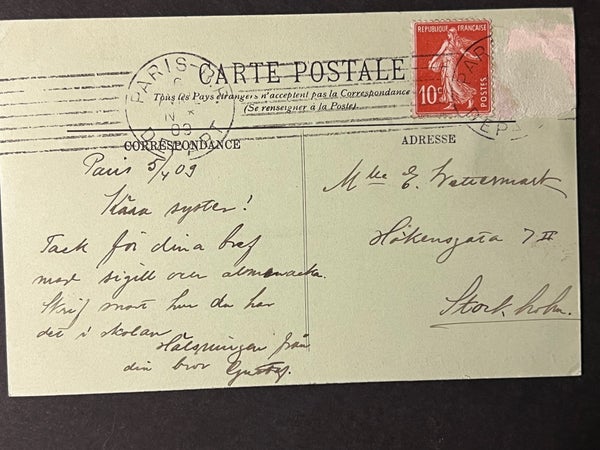 REPUBLIQUE FRANÇAISE
10c POSTES
PARIS
DEPART
09
CARTE POSTALE
Tous les Pays étrangers n'acceptent pas la Correspondance
(Se renseigner à la Poste).
CORRESPONDANCE
ADRESSE
Paris 5/4 09
Kära syster!
Tack för dina bref
med sigill over
Skrif snart hur du har
det i skolan
Hälsningar från
din bror Gustaf.
Mlle E. Wattermark
Hökensgata 7 II
Stockholm.